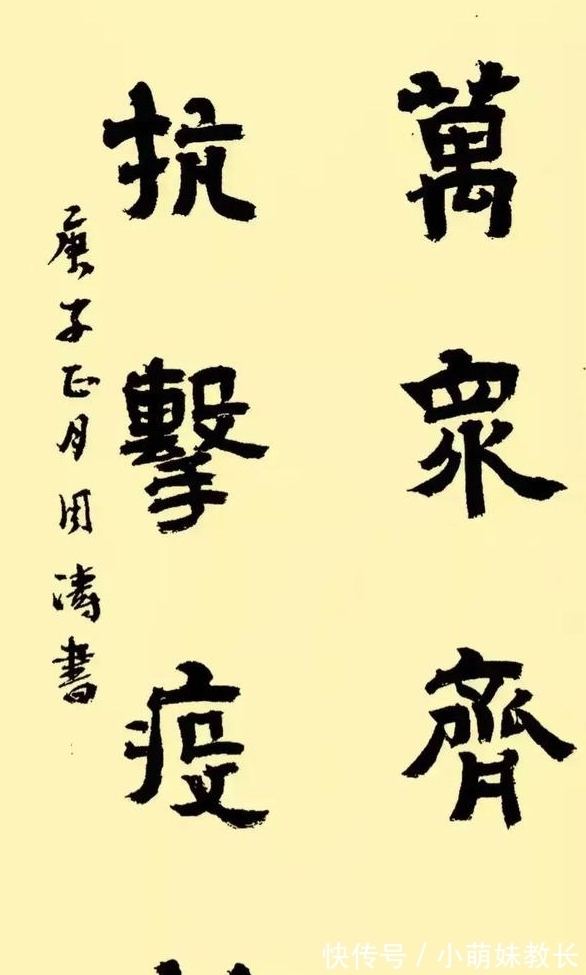 萬眾齊
抗擊疫
庚子正月周濤書
快传号 / 小萌妹教长